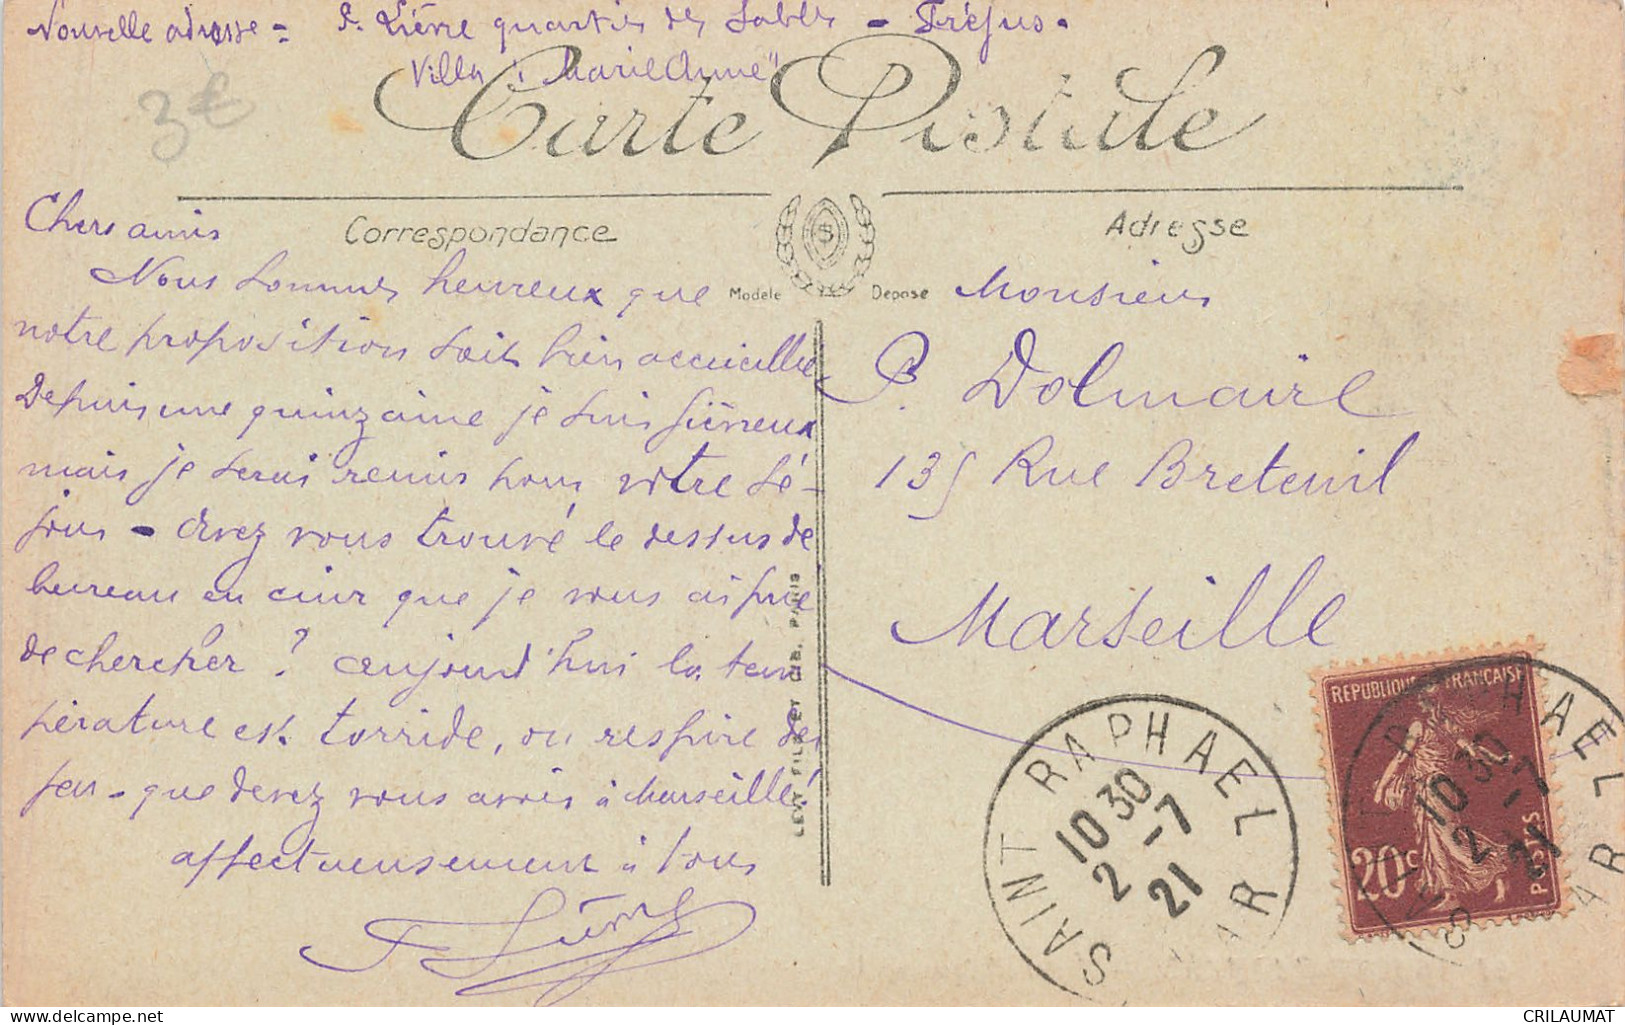 Nouvelle adresse = P. Lièvre quartier des Sables - Fréjus.
Villa "Marie Anne"
3 €
Carte Postale
Correspondance
Adresse
Modèle Déposé
Chers amis
Nous sommes heureux que
notre proposition soit bien accueillie
Depuis une quinzaine je suis fiévreux
mais je serai remis pour votre sé-
jour - Avez vous trouvé le dessus de
bureau en cuir que je vous ai prié
de chercher ? aujourd'hui la tem
pérature est torride, on respire du
feu - que devez vous avoir à Marseille !
affectueusement à tous
P. Lièvre
LEVY FILS ET Cie, PARIS
Monsieur
P. Dolmaire
135 Rue Breteuil
Marseille
SAINT RAPHAEL
10 30
2 -7
21
VAR
REPUBLIQUE FRANCAISE
20c
POSTES
SAINT RAPHAEL
10 30
2 -7
21
VAR
CRILAUMAT